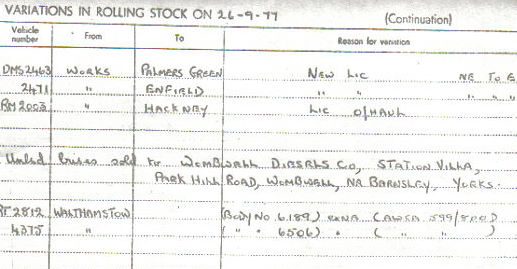 VARIATIONS IN ROLLING STOCK ON 26-9-77 (Continuation)
Vehicle number From To Reason for variation
DMS2463 WORKS PALMERS GREEN NEW LIC NE TO E
2471 " ENFIELD " " " " "
RM2003 " HACKNEY LIC O/HAUL
Unlsd buses sold to WOMBWELL DIESELS CO, STATION VILLA,
PARK HILL ROAD, WOMBWELL, NR BARNSLEY, YORKS.
RT2812 WALTHAMSTOW (BODY NO 6189) EXNA (AWSR 599/
4375 " ( " " 6506) " ( " "